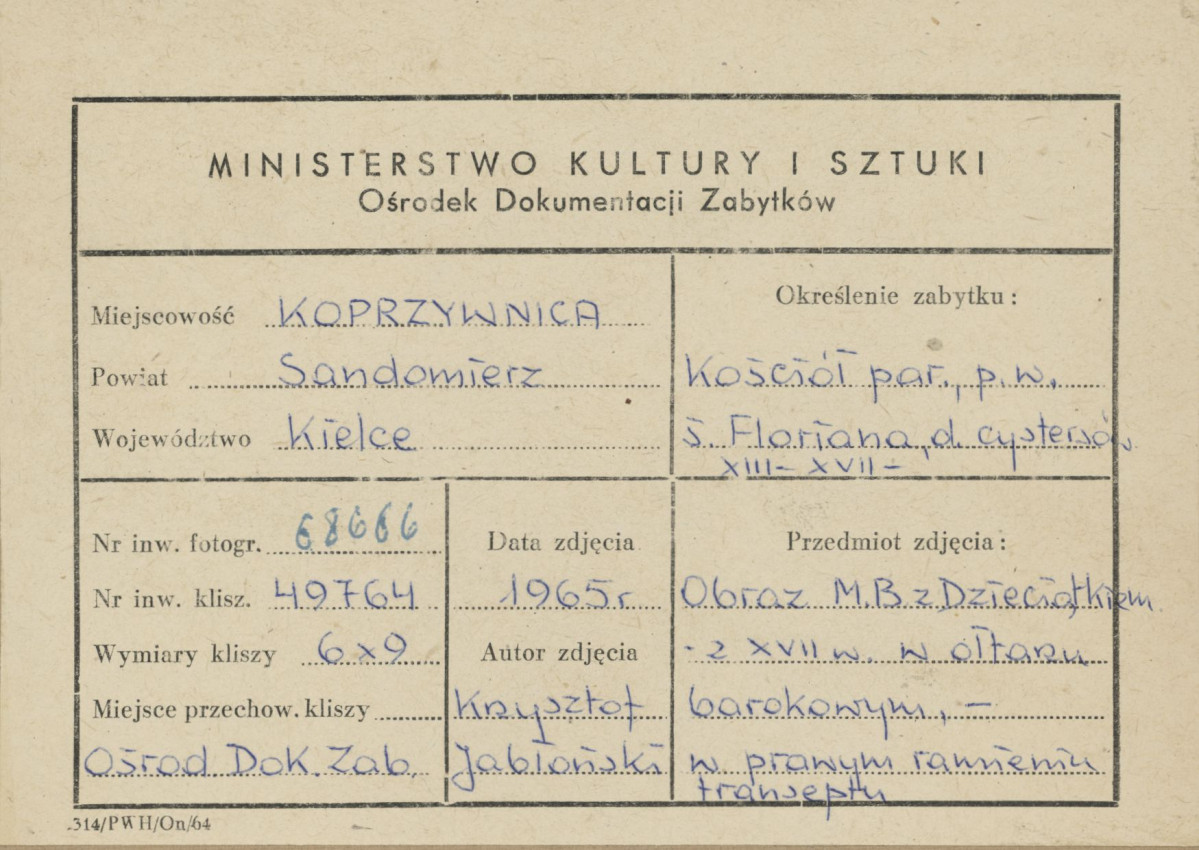 MINISTERSTWO KULTURY I SZTUKI
Ośrodek Dokumentacji Zabytków
Miejscowość KOPRZYWNICA
Powiat Sandomierz
Województwo Kielce
Określenie zabytku:
Kościół par., p.w.
ś. Floriana, d. cystersów
XIII – XVII –
Nr inw. fotogr. 68666
Nr inw. klisz. 49764
Wymiary kliszy 6x9
Miejsce przechow. kliszy
Ośrod Dok. Zab.
Data zdjęcia
1965 r
Autor zdjęcia
Krzysztof
Jabłoński
Przedmiot zdjęcia:
Obraz M.B z Dzieciątkiem
- z XVII w. w ołtarzu
barokowym, –
w prawym ramieniu
transeptu
314/PWH/On/64